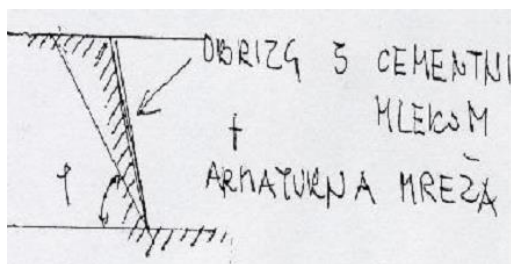 OBRIZG S CEMENTNI
MLEKOM
+
ARMATURNA MREŽA
φ